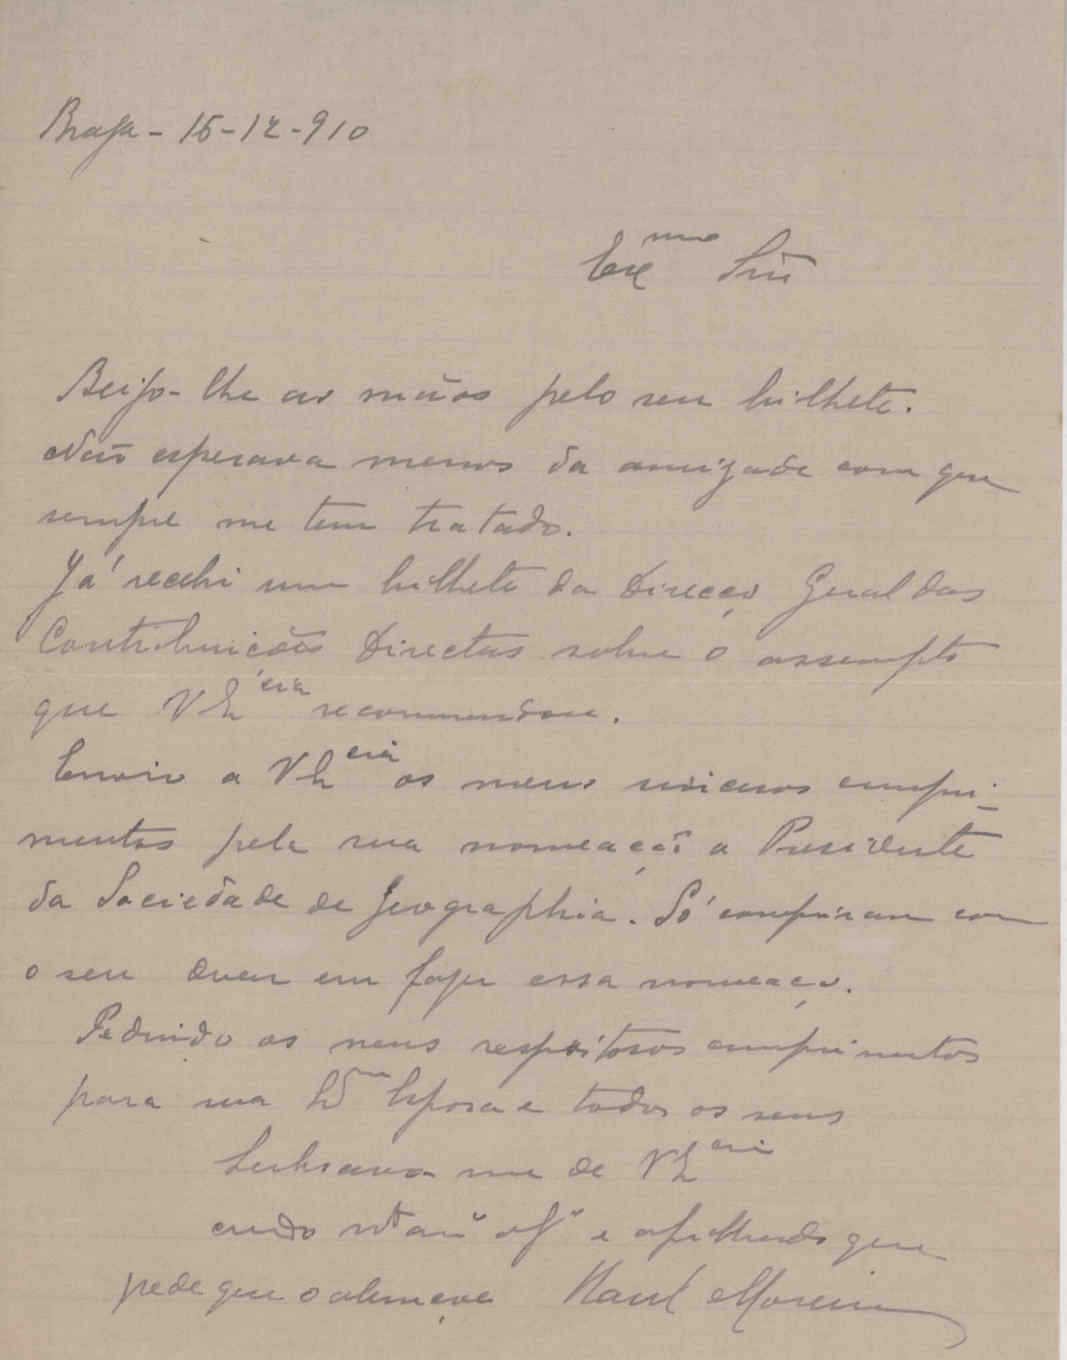 Braga - 15-12-910
Exmo Snr
Beijo-lhe as mãos pelo seu bilhete.
Não esperava menos da amizade com que
sempre me tem tratado.
Já recebi um bilhete da Direcção Geral das
Contribuições Directas sobre o assumpto
que VExcia recommendou.
Envio a VExcia os meus sinceros cumpri-
mentos pela sua nomeação a Presidente
da Sociedade de Geographia. Só cumpriram com
o seu dever em fazer essa nomeação.
Pedindo os meus respeitosos cumprimentos
para sua Esposa e todos os seus
me de VExcia
e afilhado que
pede que o abençoe Raul Moreira